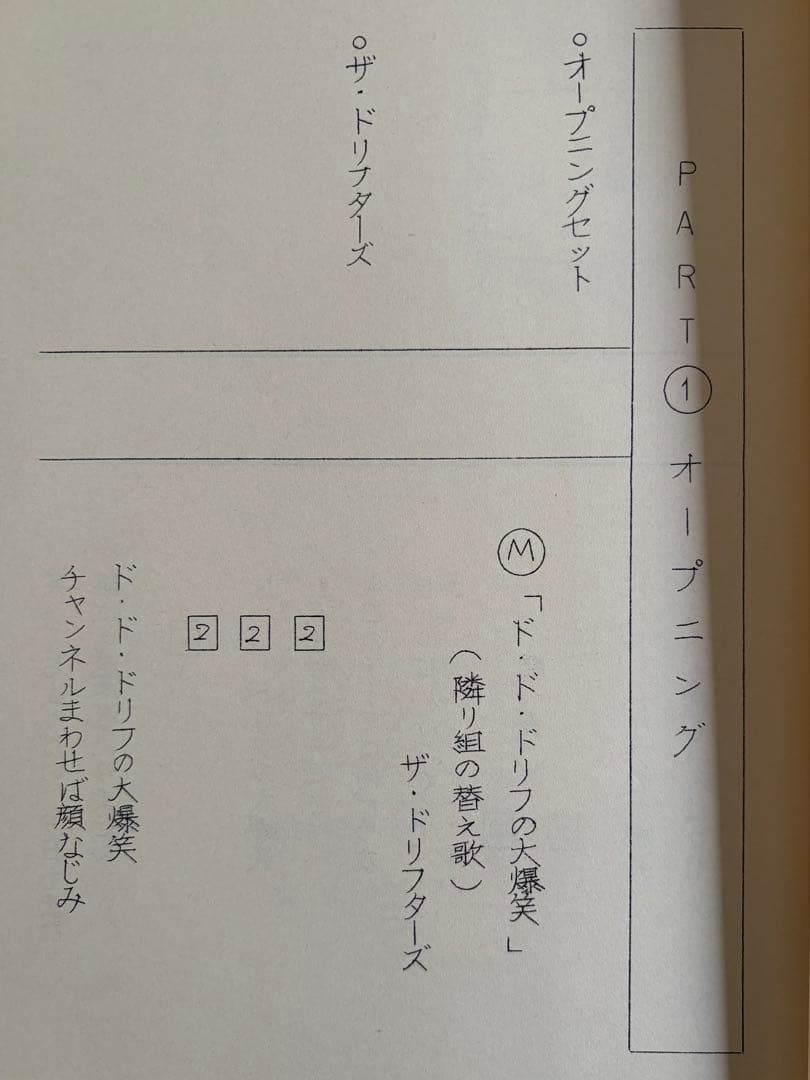 PART① オープニング
○オープニングセット
○ザ・ドリフターズ
Ⓜ「ド・ド・ドリフの大爆笑」
(隣り組の替え歌)
ザ・ドリフターズ
2
2
2
ド・ド・ドリフの大爆笑
チャンネルまわせば顔なじみ